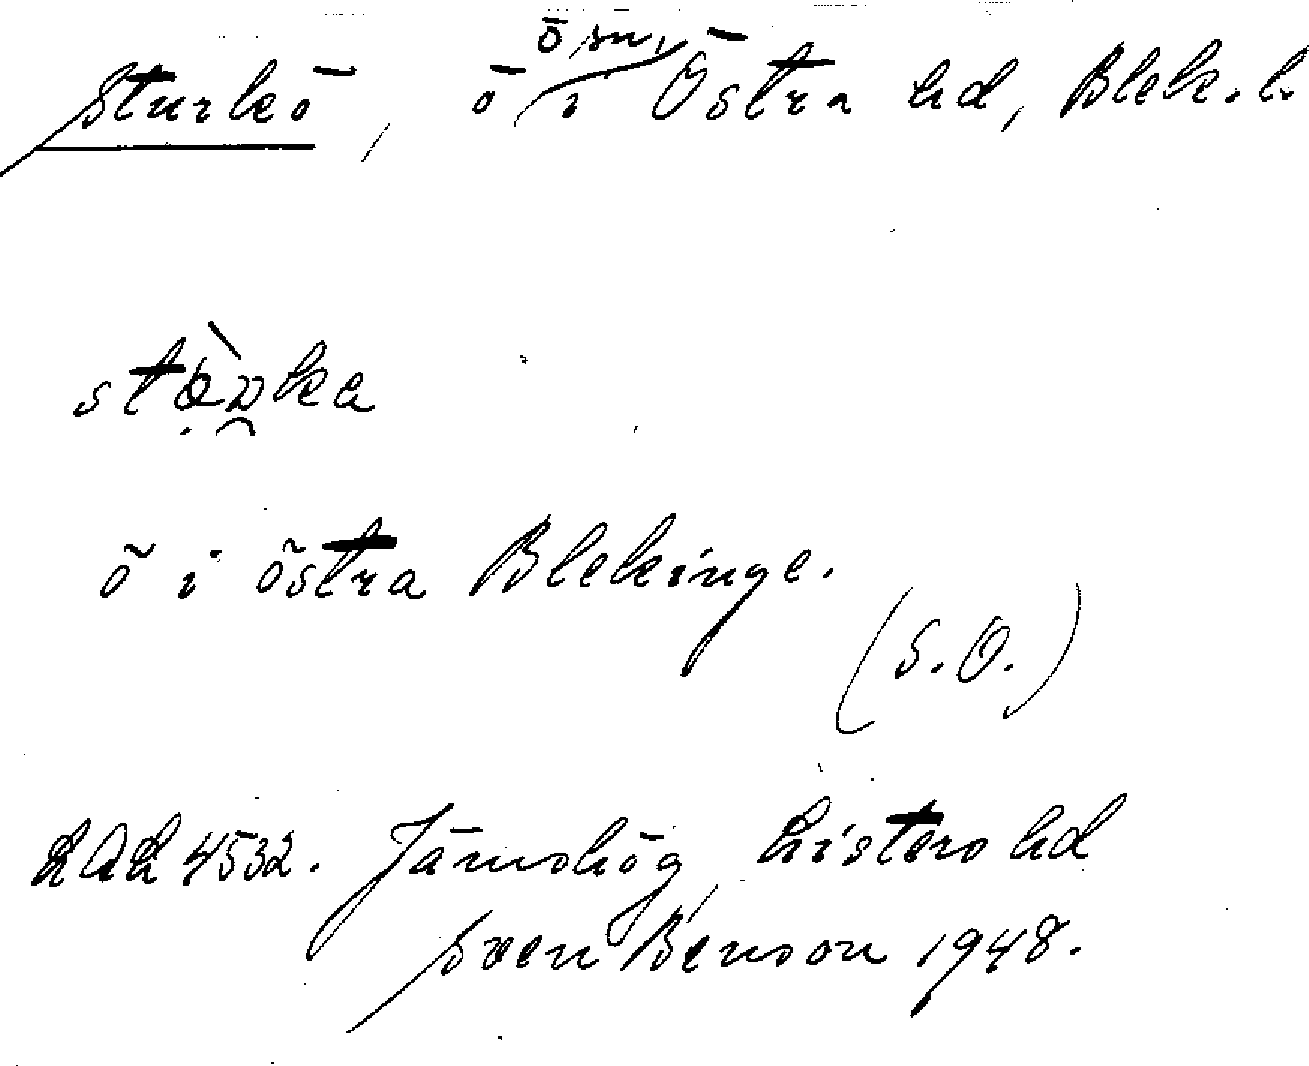 Sturkö, ö i Östra hd, Blek. l.
ö sn,
ö i östra Blekinge.
(S. O.)
LAL 4532. Jämshög, Listers hd
Sven Benson 1948.